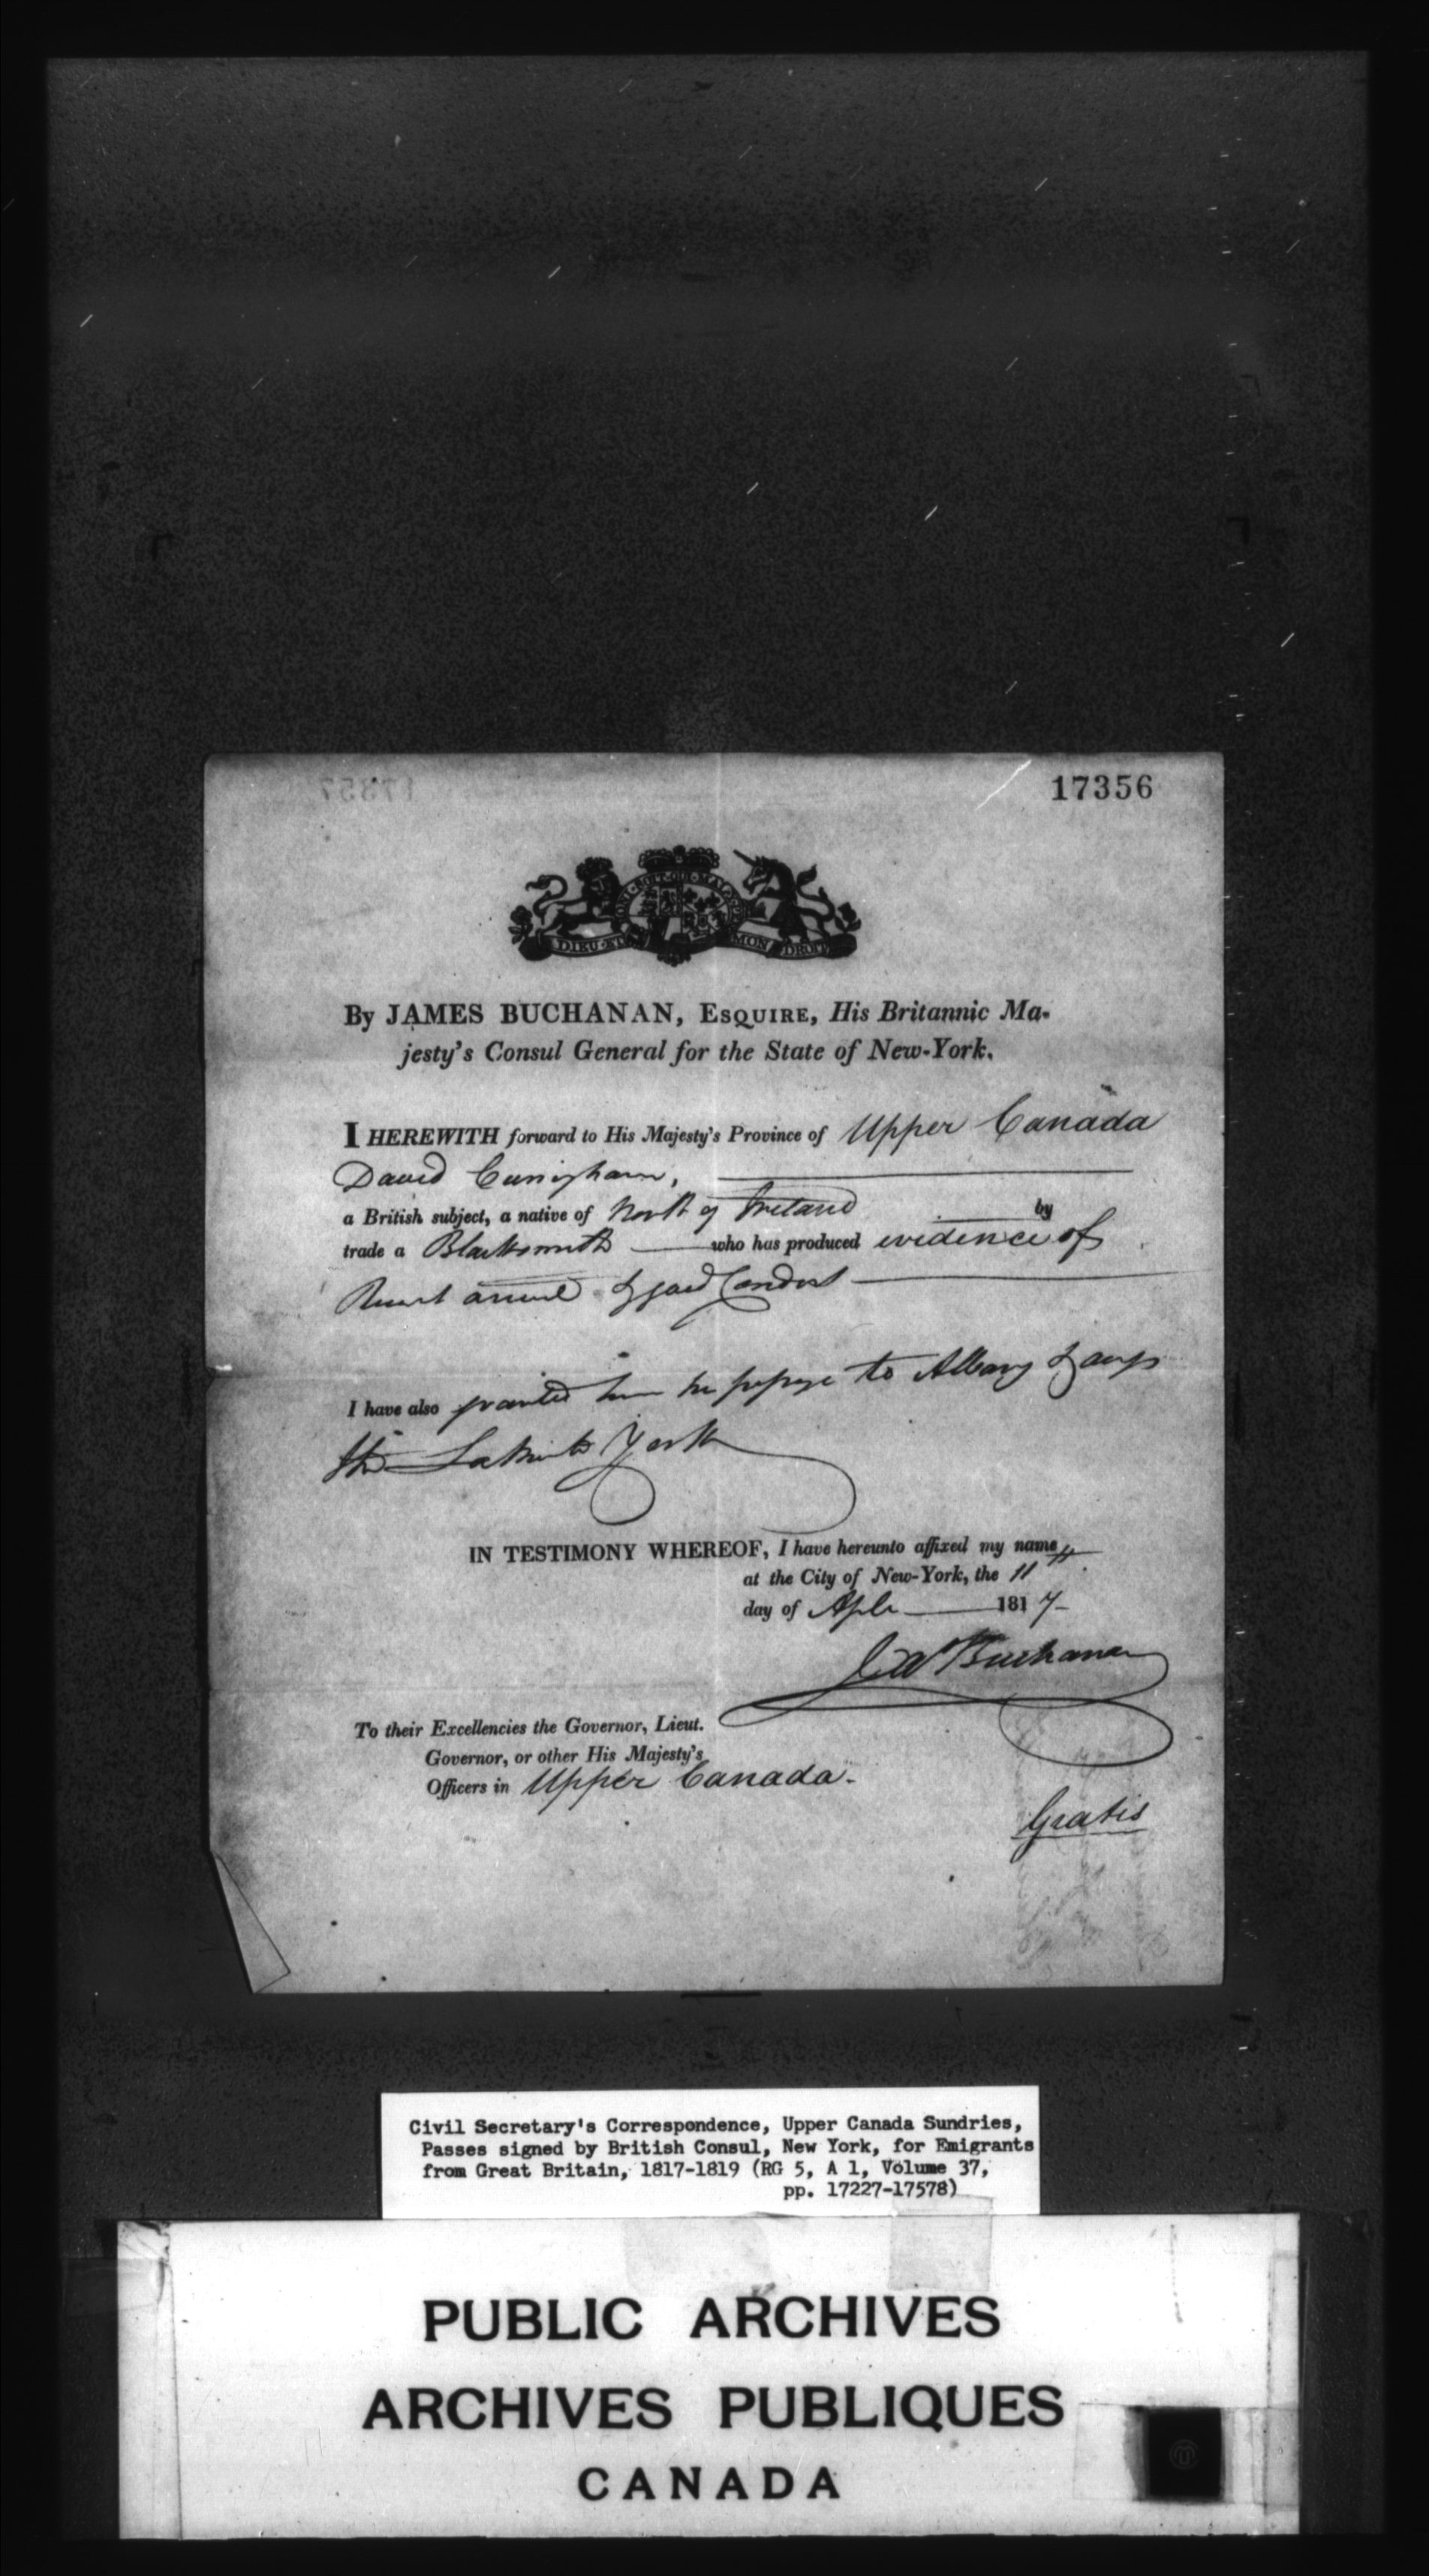 17356
HONI SOIT QUI MAL
DIEU ET MON DROIT
By JAMES BUCHANAN, ESQUIRE, His Britannic Ma-
jesty's Consul General for the State of New-York.
I HEREWITH forward to His Majesty's Province of Upper Canada
David Cunigham,
a British subject, a native of North of Ireland by
trade a Blacksmith who has produced evidence of
Recent arrival & good Conduct
I have also granted him to Albany &
the York
IN TESTIMONY WHEREOF, I have hereunto affixed my name
at the City of New-York, the 11th
day of Aple 1817
Ja Buchanan
To their Excellencies the Governor, Lieut.
Governor, or other His Majesty's
Officers in Upper Canada.
Gratis
Civil Secretary's Correspondence, Upper Canada Sundries,
Passes signed by British Consul, New York, for Emigrants
from Great Britain, 1817-1819 (RG 5, A 1, Volume 37,
pp. 17227-17578)
PUBLIC ARCHIVES
ARCHIVES PUBLIQUES
CANADA